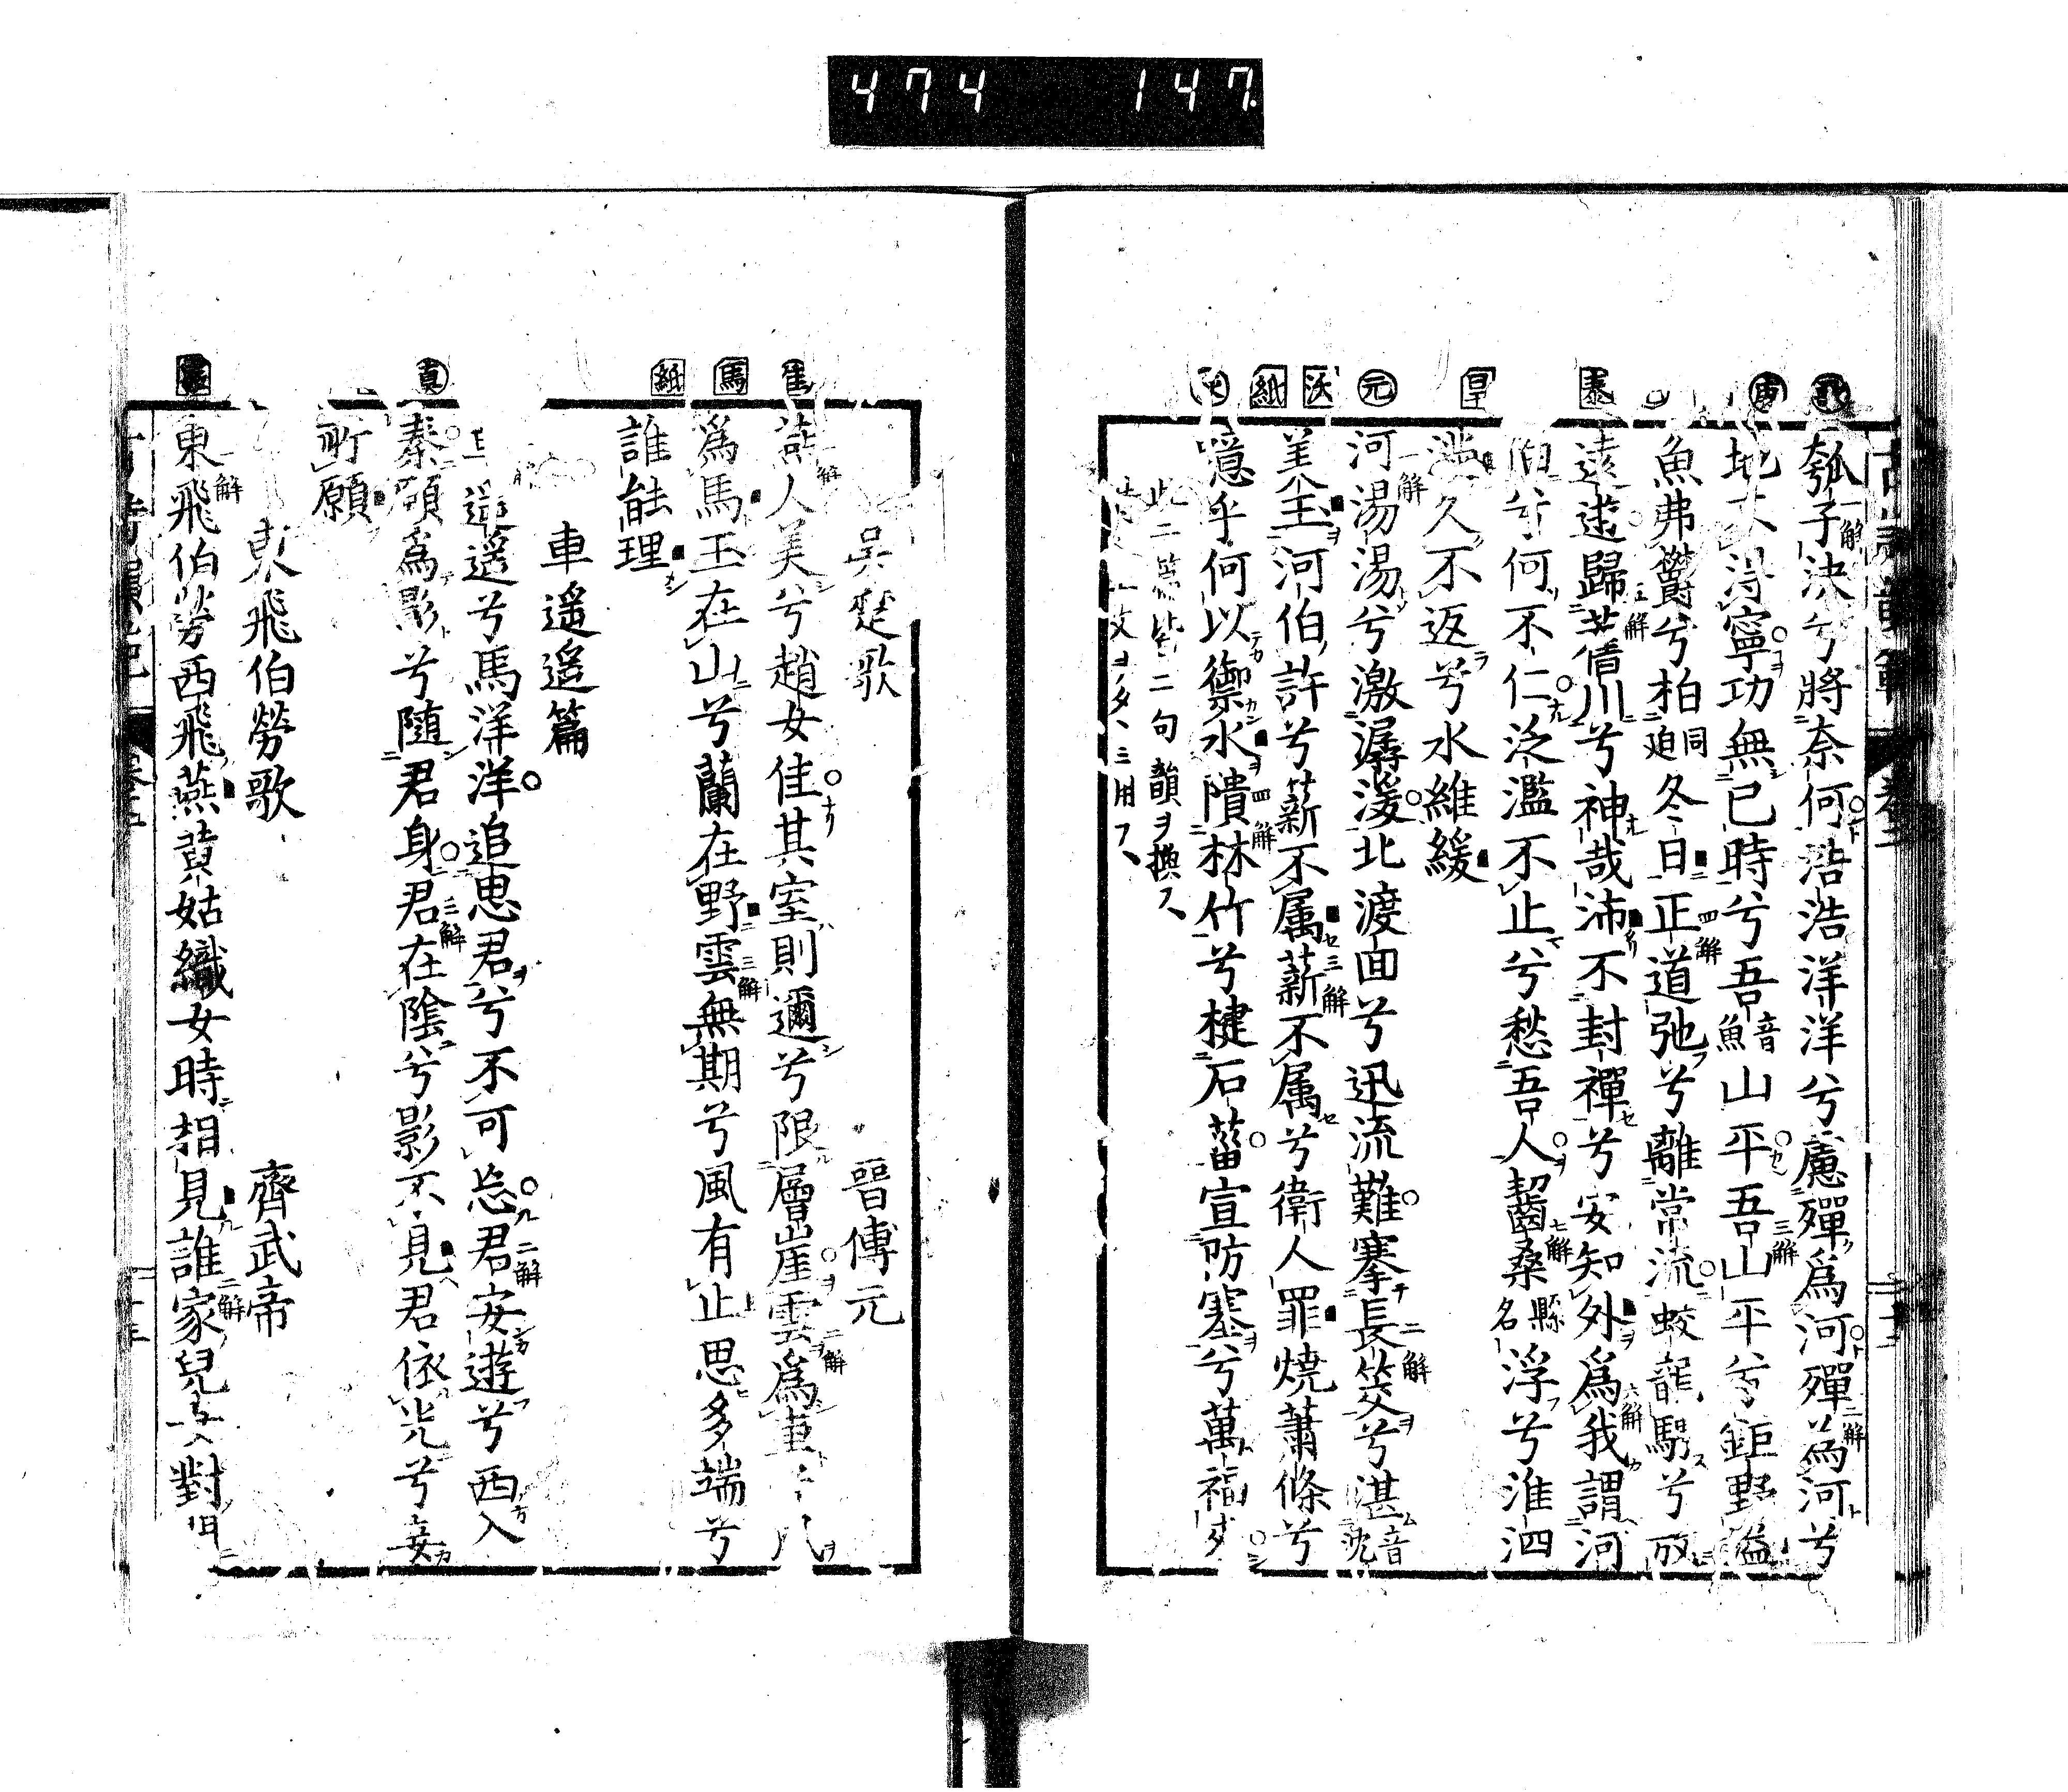 474 147
瓠子決兮將奈何浩浩洋洋兮慮殫爲河殫為河兮
地不得寧功無已時兮吾音魚山平吾山平兮鉅野溢
魚弗鬱兮柏同迫冬日正道弛兮離常流蛟龍騁兮放
遠遊歸舊川兮神哉沛不封禪兮安知外爲我謂河
伯兮何不仁泛濫不止兮愁吾人齧桑縣名浮兮淮泗
滿久不返兮水維緩
河湯湯兮激潺湲北渡回兮迅流難搴長筊兮湛音沈
美玉河伯許兮薪不属薪不属兮衛人罪燒蕭條兮
噫乎何以禦水隤林竹兮楗石菑宣防塞兮萬福来
此二篇皆二句韻ヲ換フ
吳楚歌 晉傅元
燕人美兮趙女佳其室則邇兮限層崖雲爲車兮風
爲馬玉在山兮蘭在野雲無期兮風有止思多端兮
誰能理
車遥遥篇
車遥遥兮馬洋洋追思君兮不可忘君安遊兮西入
秦願為影兮随君身君在陰兮影不見君依光兮妾
所願
東飛伯勞歌 齊武帝
東飛伯勞西飛燕黄姑織女時相見誰家兒女對門